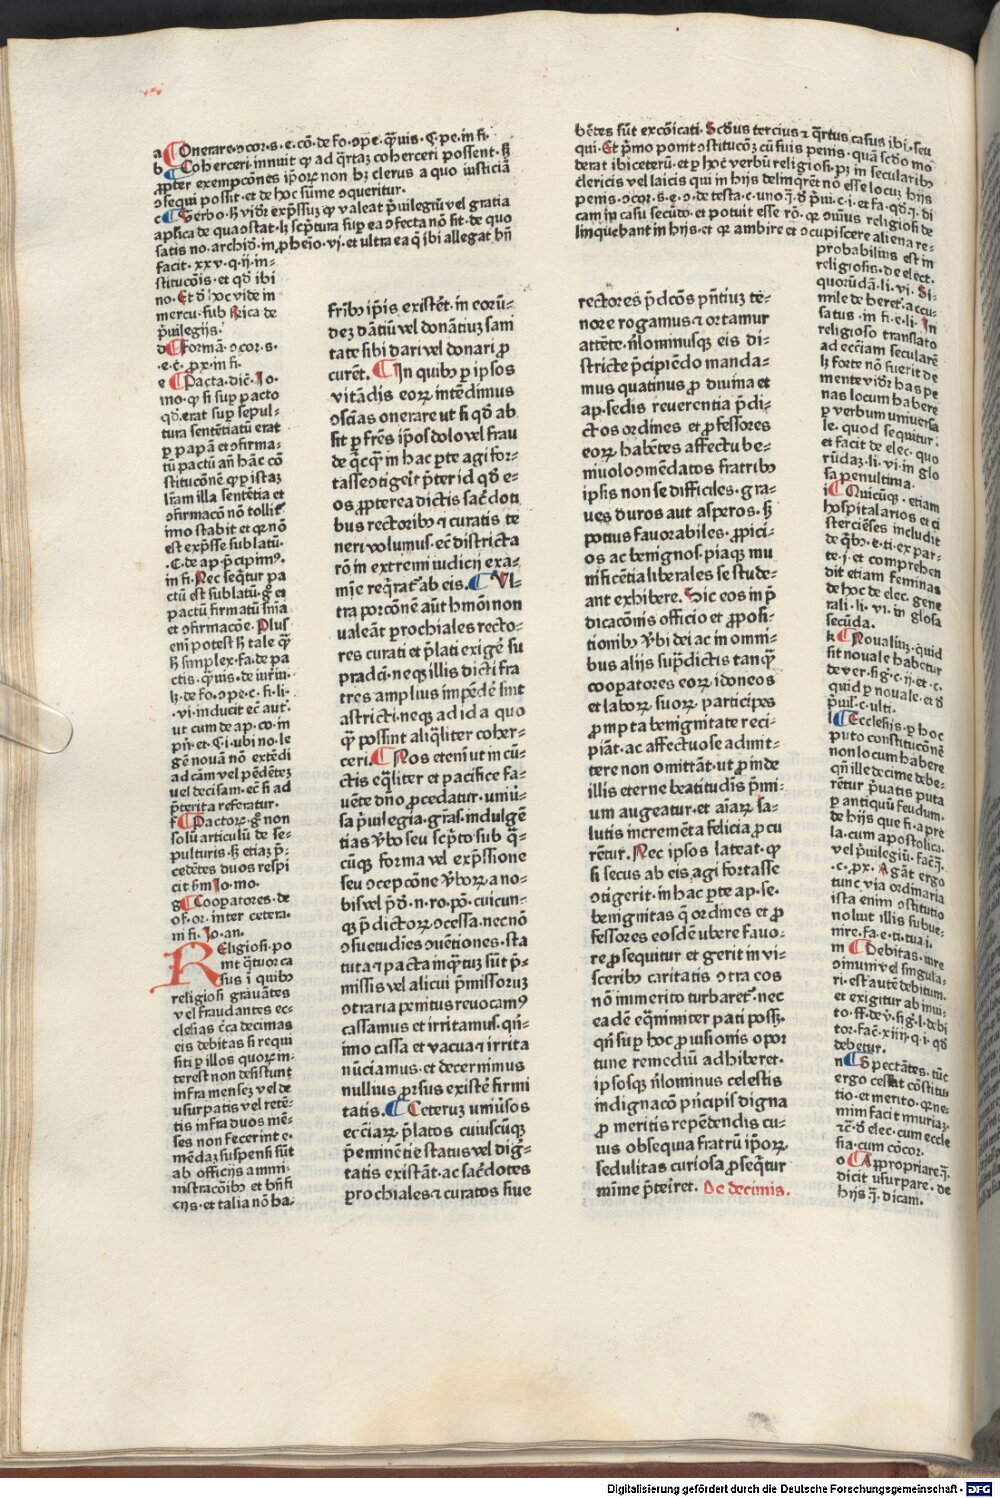 a Onerare ɔcor. s. e. cō. de fo. ɔpe. q̄uis. ꝯ. pe. in fi.
b Coherceri innuit ꝙ ad q̄rtaꝫ coherceri possent. sꝫ
ꝓpter exempcōnes ip̄oꝝ non hꝫ clerus a quo iusticiā
ɔsequi possit. et de hoc sūme ɔqueritur.
satis no. archid̄. in ꝓhēio. vi. et ultra ea q̄ ibi allegat bn̄
facit. xxv. q. ij. in-
stitucōis. et qd̄ ibi
no. Et d̄ hoc vide in
mercu. sub Rica de
p̄uilegijs.
d Formā ɔcor. s.
e. c. ꝓx. in fi.
e Pacta. dic̄. Io.
mo. ꝙ si sup pacto
qd̄ erat sup sepul-
tura sentētiatū erat
ꝑ papā et ɔfirma-
tū pactū an̄ hāc cō
stitucōnē ꝙ ꝑ istaꝫ
lr̄am illa sentētia et
ɔfirmacō nō tollit̄
imo stabit et qꝛ nō
est exp̄sse sublatū.
C. de ap. p̄cipim⁹.
in fi. Nec seq̄tur pa
ctū est sublatū. gͦ et
pactū firmatū sn̄ia
et ɔfirmacōe. Plus
eni potest hꝫ tale qͣꝫ
hꝫ simplex. fa. de pa
ctis. q̄uis. de iurin.
li. de fo. ɔpe. c. fi. li.
vi. inducit ec̄ aut.
ut cum de ap. co. in
pn̄. et. C. ubi no. le
gē nouā nō extēdi
ad cām vel pēdētēꝫ
vel decisam. ec̄ si ad
p̄terita referatur.
f Pactorꝝ. gͦ non
solū articulū de se-
pulturis. sꝫ etiaꝫ p̄-
cedētes duos respi
cit hm̄ Io. mo.
g Coopatores. de
of. or. inter cetera.
in fi. Io. an.
Religiosi. po
nit q̄tuor ca
sus ī quibꝰ
religiosi grauātes
vel fraudantes ec-
clesias c̄ca decimas
eis debitas si requi
siti ꝑ illos quoꝝ in-
terest non desistunt
infra mensēꝫ vel de
usurpatis vel retē-
tis infra duos mē-
ses non fecerint e-
mēdaꝫ suspensi sūt
ab officijs ammi-
nistracōibꝰ et bn̄fi
cijs. et talia nō ha-
fribꝰ ip̄is existēt. in eorū-
deꝫ dātiū vel donātiuꝫ sani
tate sibi dari vel donari ꝓ
curēt. In quibꝰ ꝑ ipsos
vitādis eoꝝ intēdimus
ɔscīas onerare ut si qd̄ ab-
sit ꝑ fr̄es ip̄os dolo vel frau
de q̄cqͣꝫ in hac ꝑte agi for-
tasse ɔtigeit p̄ter id qd̄ e-
os ꝓpterea dictis sac̄doti
bus rectoribꝰ ⁊ curatis te
neri volumus. ec̄ districta
rō in extremi iudicij exa-
mīe req̄rat̄ ab eis. Ul-
tra porcōnē aūt hmōi non
ualeāt prochiales recto-
res curati et p̄lati exigē su
pradcā. neqꝫ illis dicti fra
tres amplius impēdē sint
astricti. neqꝫ ad id a quo
qͣꝫ possint aliq̄liter coher-
ceri. Nos etenī ut in cū-
ctis eq̄liter et pacifice fa-
uēte dn̄o ꝓcedatur. uniū-
sa p̄uilegia. gr̄as. indulgē
tias v̄bo seu scp̄to sub q̄-
cūqꝫ forma vel exp̄ssione
seu ɔcepcōne v̄boꝝ. a no-
bis vel p̄d̄. n. ro. po. cuicun-
qꝫ p̄dictoꝝ ɔcessa. nec nō
ɔsuetudīes ɔuētiones. sta
tuta ⁊ pacta inq̄tuꝫ sūt p̄-
missis vel alicui p̄missoruꝫ
ɔtraria penitus reuocam⁹
cassamus et irritamus. qn̄-
imo cassa et vacua ⁊ irrita
nūciamus. et decernimus
nullius ꝓrsus existē firmi
tatis. Ceteruꝫ uniūsos
ecc̄iaꝝ p̄latos cuiuscūqꝫ
p̄eminētie status vel dig-
tatis existāt. ac sac̄dotes
prochiales ⁊ curatos siue
bētes sūt excōicati. Scd̄us tercius ⁊ q̄rtus casus ibi. seu
qui. Et p̄mo ponit ɔstitucōꝫ cū suis penis. quā scd̄o mo
derat ibi ceterū. et ꝑ hoc verbū religiosi. pꝫ in secularibꝰ
clericis vel laicis qui in hijs delinq̄rēt nō esse locuꝫ hijs
cam in casu secūdo. et potuit esse rō. qꝛ om̄nis religiosi de
linquebant in hijs. et qꝛ ambire et ɔcupiscere aliena re-
rectores p̄dcōs pn̄tiuꝫ te-
nore rogamus ⁊ ortamur
attēte. n̄lominusqꝫ eis di-
stricte p̄cipiēdo manda-
mus quatinus ꝓ diuina et
ap. sedis reuerentia p̄di-
ctos ordines et ꝓfessores
eoꝝ habētes affectu be-
niuolo ɔmēdatos fratribꝰ
ipsis non se difficiles. gra-
ues duros aut asperos. sꝫ
potius fauorabiles. ꝓpici-
os ac benignos. piaqꝫ mu
nificētia liberales se stude-
ant exhibere. Sic eos in p̄
dicacōnis officio et ꝓposi-
tionibꝰ v̄bi dei ac in omni-
bus alijs sup̄dictis tanqͣꝫ
coopatores eoꝝ. idoneos
et laboꝝ suoꝝ participes
ꝓmpta benignitate reci-
piāt. ac affectuose admit-
tere non omittāt. ut ꝓinde
illis eterne beatitudīs p̄mi-
um augeatur. et aīaꝝ sa-
lutis incremēta felicia ꝓcu
rētur. Nec ipsos lateat. ꝙ
si secus ab eis agi fortasse
ɔtigerit. in hac ꝑte ap. se.
benignitas q̄ ordines et ꝓ
fessores eosdē ubere fauo-
re ꝓsequitur et gerit in vi-
sceribꝰ caritatis ɔtra eos
nō immerito turbaret̄. nec
eadē eq̄nimiter pati possꝫ.
qn̄ suꝑ hoc ꝓuisionis opor
tune remediū adhiberet.
ipsosqꝫ n̄lominus celestis
indignacō prīcipis digna
ꝓ meritis repēdendis cu-
ius obsequia fratrū ip̄oꝝ
sedulitas curiosa ꝓseq̄tur
mīme p̄teiret. De decimis.
probabilius est in
religiosis. de elect.
quorūdā. li. vi. Si-
mile de heret. accu-
satus. in fi. e. li. In
religioso translato
ad ecc̄iam secularē
lꝫ forte nō fuerit de
mente vid̄r has pe
nas locum habere
ꝑ verbum uniuersa
le. quod sequitur.
et facit de elec. quo
rūdaꝫ. li. vi. in glo
sa penultima.
i Quicūqꝫ. etiam
hospitalarios et ci
stercieses includit
de q̄bꝰ. e. ti. ex par-
te. j. et comprehen
dit etiam feminas
de hoc de elec. gene
rali. li. vi. in glosa
secūda.
k Noualiuꝫ. quid
sit nouale habetur
de ver. sig. c. ij. et. c.
quid ꝑ nouale. et d̄
p̄uil. c. ulti.
l Ecclesijs. ꝑ hoc
puto constitucōnē
non locum habere
qn̄ ille decime debe-
rētur p̄uatis puta
ꝑ antiquū feudum.
de hijs que fi. a pre
la. cum apostolica.
vel p̄uilegiū. fac̄ q̄.
c. ꝓx. Agāt ergo
tunc via ordinaria
ista enim ɔstitutio
noluit illis subue-
nire. fa. e. ti. tua. i.
m Debitas. iure
ɔmuni vel singula-
ri. est aūtē debitum.
et exigitur ab inui-
to. ff. de v̄. sig. l. debi
tor. fac̄. xiiij. q. i. qd̄
debetur.
n Spectātes. tūc
ergo cessat cōstitu-
tio. et merito. qꝛ ne-
mini facit iniuriaꝫ.
⁊c̄. d̄ elec. cum eccle
sia. cum cōcor.
o Appropriare. q̄.
dicit usurpare. de
hijs q̄. dicam.
Digitalisierung gefördert durch die Deutsche Forschungsgemeinschaft - DFG